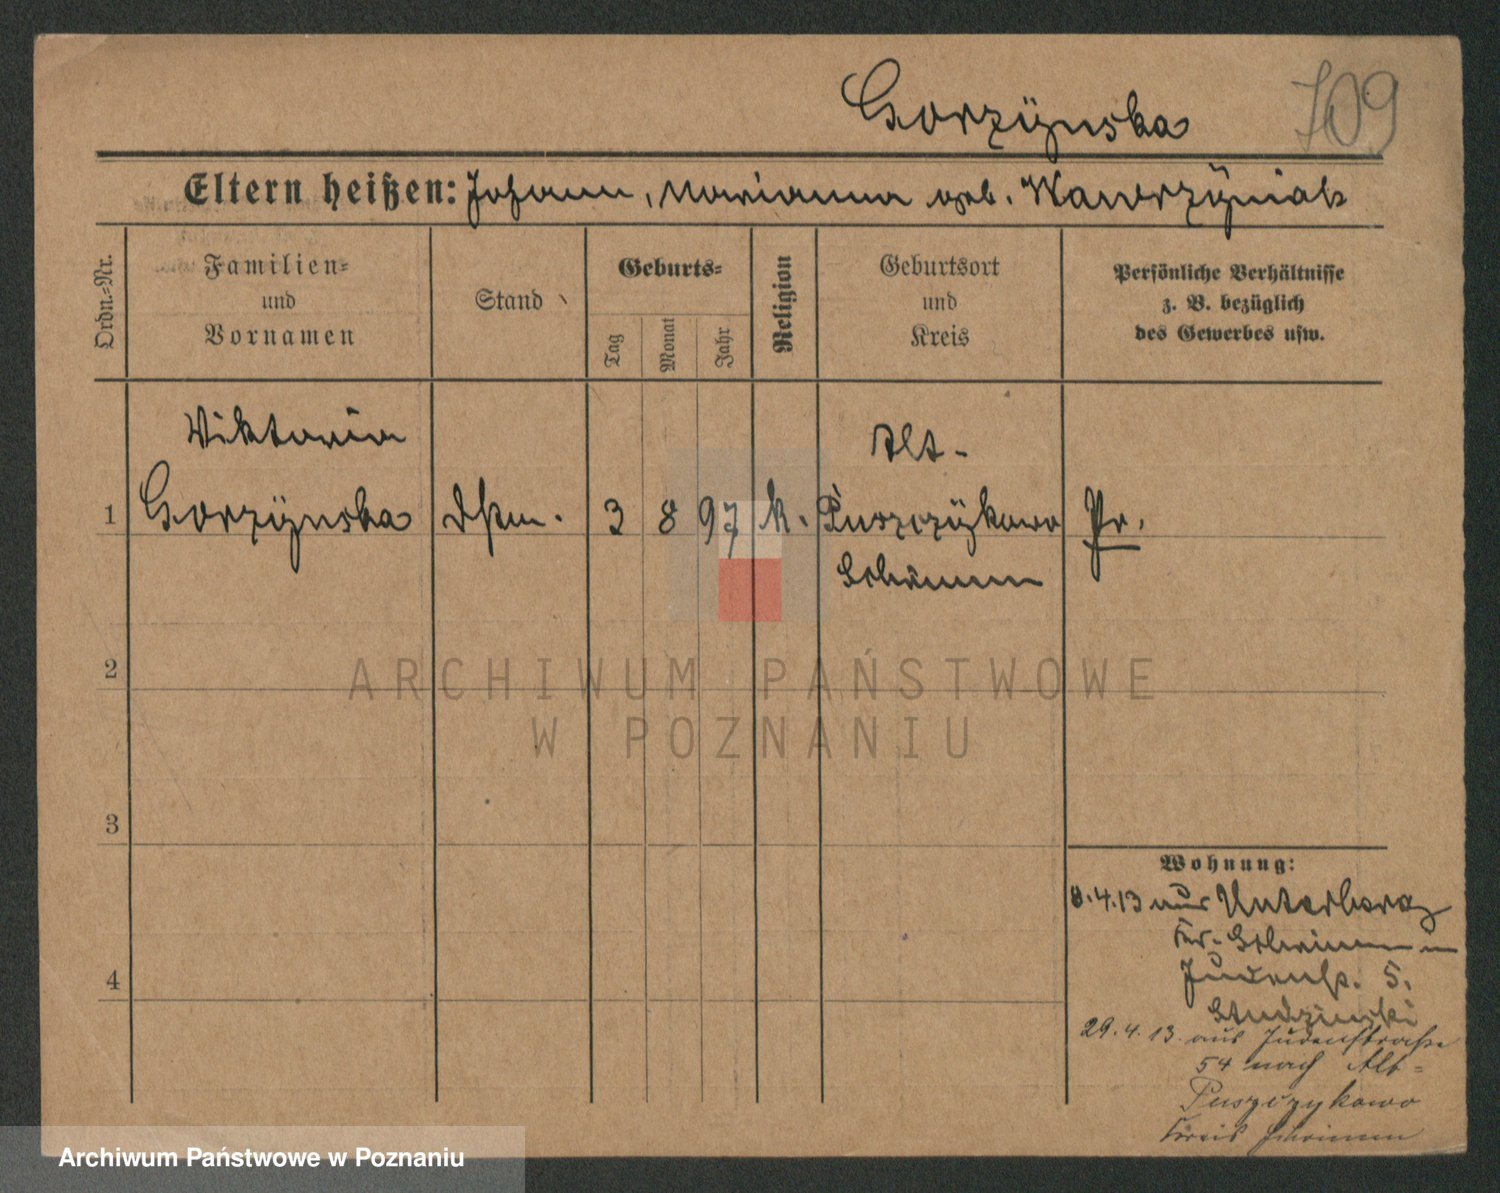 Gorzÿnska 709
Eltern heißen: Johann, Marianna geb. Wawrzÿniak
Ordn.-Nr.
Familien-
und
Vornamen
Stand
Geburts-
Tag
Monat
Jahr
Religion
Geburtsort
und
Kreis
Persönliche Verhältnisse
z. B. bezüglich
des Gewerbes usw.
Viktoria
1 Gorzÿnska
3 8 97 k.
Alt-
Puszczÿkowo
Schrimm
Pr.
2
3
4
Wohnung:
8.4.13 aus Unterberg
Kr. Schrimm in
Judenstr. 5.
Studzinski
29.4.13. aus Judenstraße
54 nach Alt-
Puszczykowo
Kreis Schrimm
ARCHIWUM PAŃSTWOWE
W POZNANIU
Archiwum Państwowe w Poznaniu